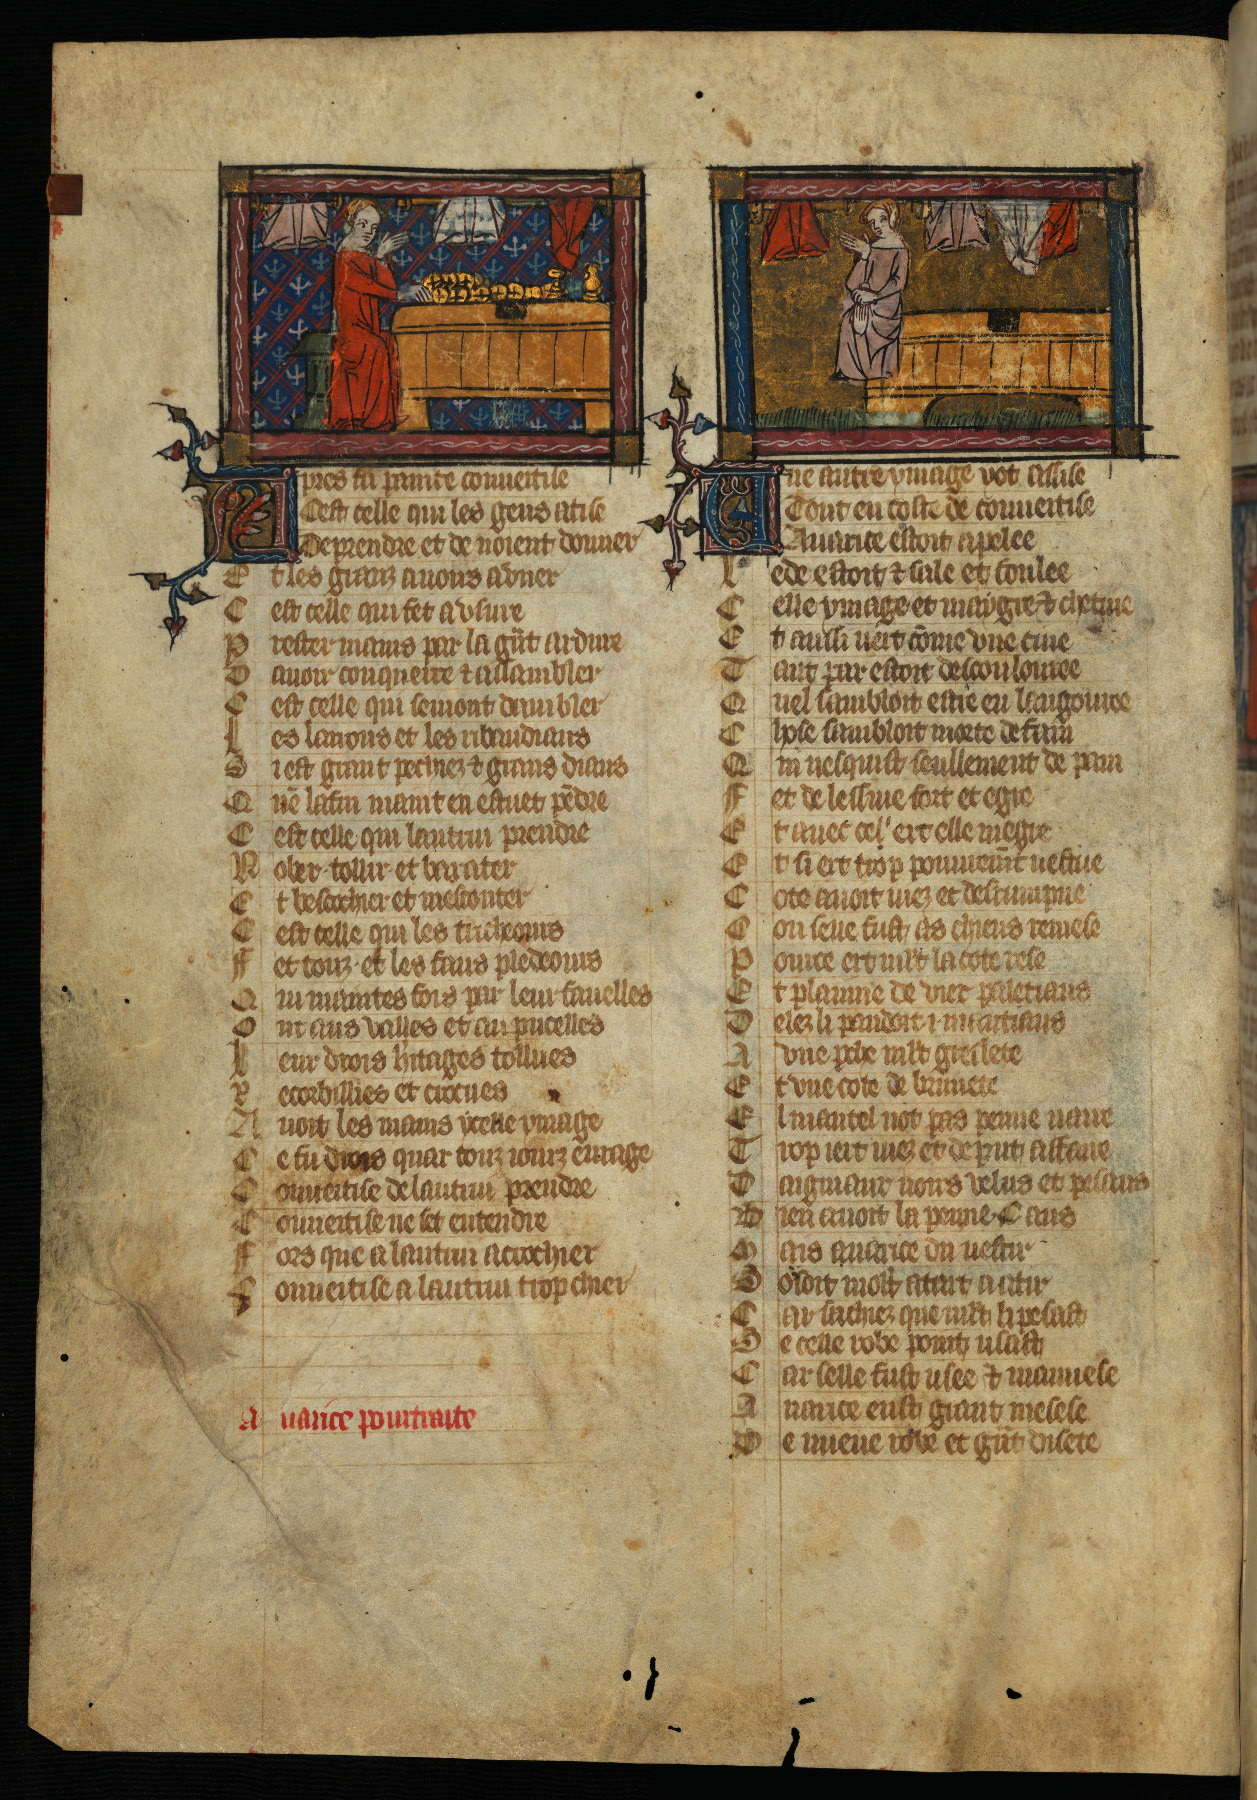 Apres fu painte couuertise
Cest celle qui les gens atise
De prendre et de noient donner
Et les granz auoirs aüner
Cest celle qui fet a vsure
Prester mains par la gñt ardure
Dauoir conquerre ⁊ assambler
Cest celle qui semont dambler
Les larrons et les ribaudiaus
Si est grant pechiez ⁊ grans diaus
Quē la fin maint en estuet pēdre
Cest celle qui lautrui prendre
Rober tollir et barater
Et bescochier et mesconter
Cest celle qui les tricheours
Fet touz et les faus pledeours
Qui maintes fois par leur fauelles
Ont aus valles et au pucelles
Leur drois h̓itages tollues
Recorbillies et crocues
Auoit les mains ycelle ymage
Ce fu drois quar touz iourz enrage
Couuertise de lautrui prendre
Couuertise ne set entendre
Fors que a lautrui acrochier
Couuertise a lautrui trop chier
Auarice pourtraite
Une autre ymage vot assise
Tout en coste de couuertise
Auarice estoit apelee
Lede estoit ⁊ sale et foulee
Celle ymage et maygre ⁊ chetiue
Et aussi vert cōme vne ciue
Tant par estoit descoulouree
Quel sambloit estre en langouree
Chose sambloit morte de fain
Qui uesquist seullement de pain
Fet de lessiue fort et egre
Et auec cel' ert elle megre
Et si ert trop pourem̄t uestue
Cote auoit uiez et desrumpue
Con selle fust as chiens remese
Poure ert ml't la cote rese
Et plainne de viez paletiaus
Delez li pendoit .i. mantiaus
A vne pche ml't greslete
Et vne cote de brunete
El mantel not pas penne uaire
Trop iert uiez et de put affaire
Daigniaur noirs velus et pesans
Bien auoit la penne .C. ans
Mais auarice du uestir
Se cele robe point usast
Car selle fust usee ⁊ mauuese
Auarice eust grant mesese
De nueue robe et gñt disete